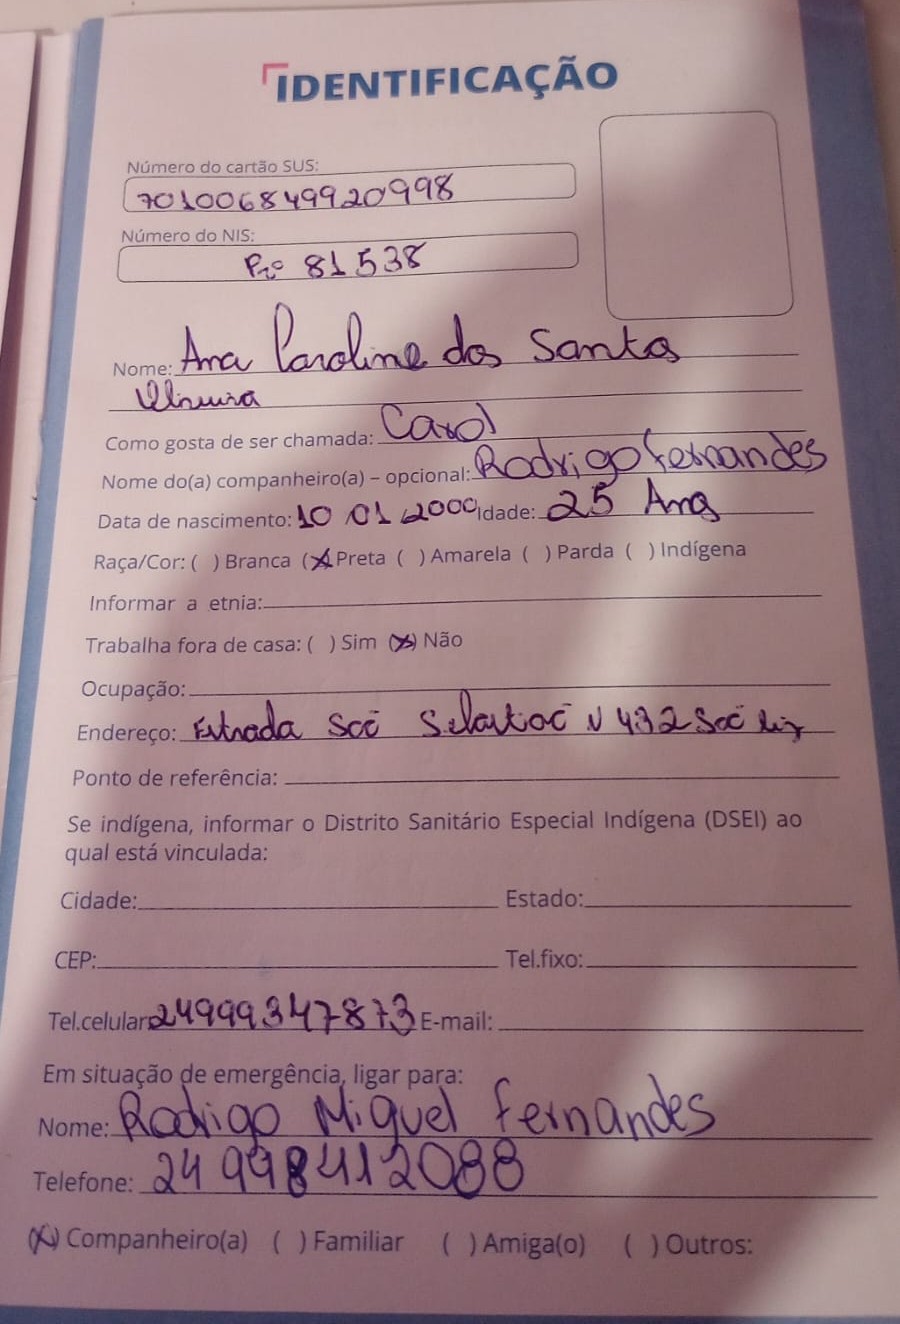 IDENTIFICAÇÃO
Número do cartão SUS:
701006849920998
Número do NIS:
Pro 81538
Nome: Ana Caroline dos Santos
Oliveira
Como gosta de ser chamada: Carol
Nome do(a) companheiro(a) – opcional: Rodrigo Fernandes
Data de nascimento: 10 01 2000 Idade: 25 Anos
Raça/Cor: ( ) Branca (X) Preta ( ) Amarela ( ) Parda ( ) Indígena
Informar a etnia:
Trabalha fora de casa: ( ) Sim (X) Não
Ocupação:
Endereço: Estrada São N 432 São
Ponto de referência:
Se indígena, informar o Distrito Sanitário Especial Indígena (DSEI) ao
qual está vinculada:
Cidade: Estado:
CEP: Tel.fixo:
Tel.celular: 24999347873 E-mail:
Em situação de emergência, ligar para:
Nome: Rodrigo Miguel Fernandes
Telefone: 24 998412088
(X) Companheiro(a) ( ) Familiar ( ) Amiga(o) ( ) Outros: